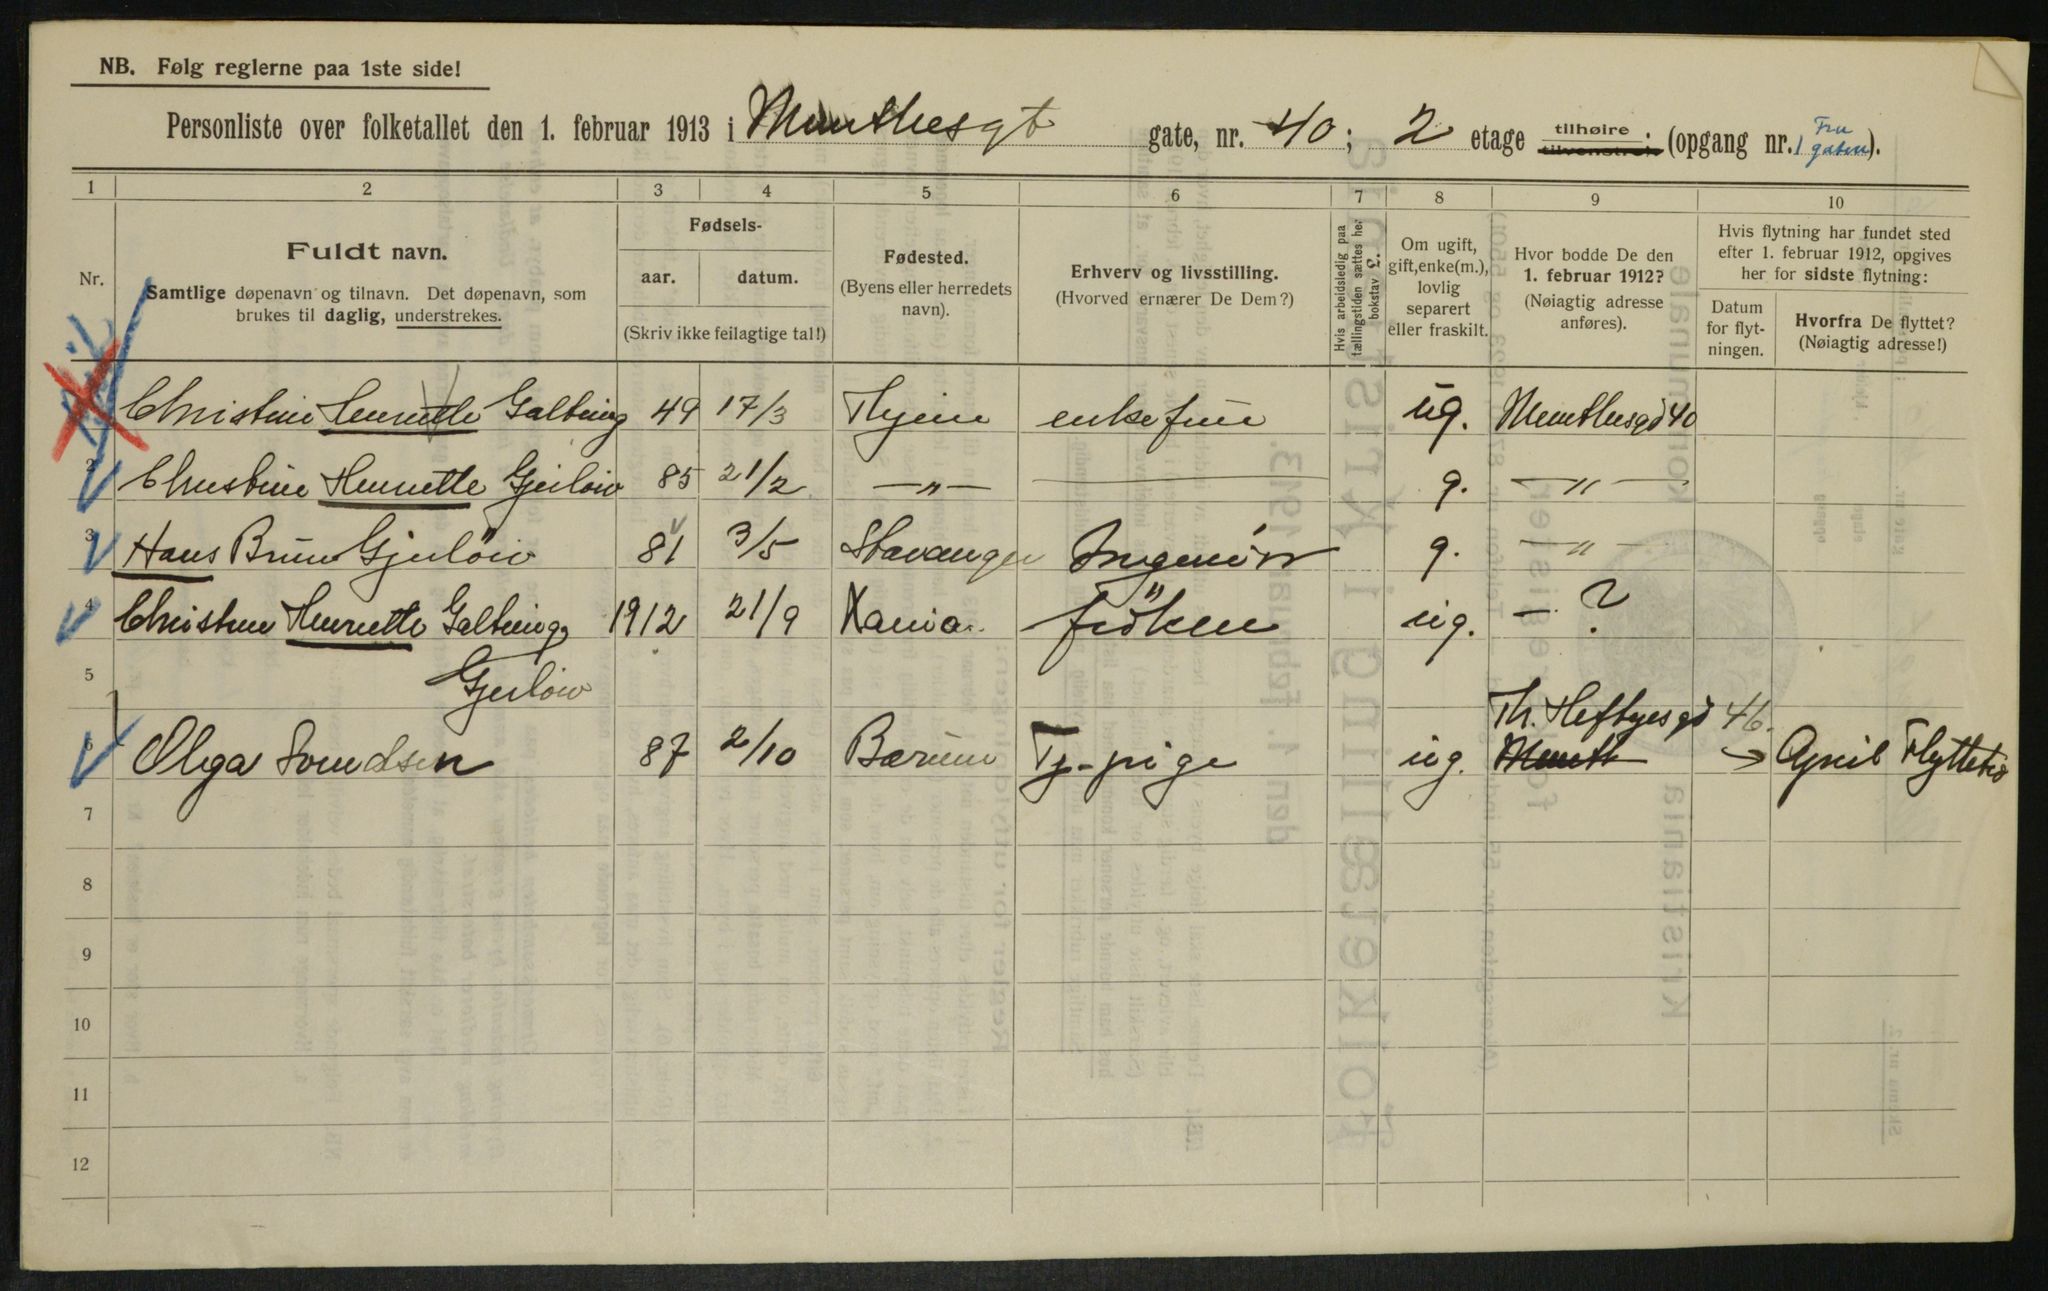 NB. Følg reglerne paa 1ste side!
Personliste over folketallet den 1. februar 1913 i Munthesgt gate, nr. 40; 2 etage tilhøire tilvenstre (opgang nr. 1 Fru gaten).
1 2 3 4 5 6 7 8 9 10
Nr.
Fuldt navn.
Samtlige døpenavn og tilnavn. Det døpenavn, som
brukes til daglig, understrekes.
Fødsels-
aar. datum.
(Skriv ikke feilagtige tal!)
Fødested.
(Byens eller herredets
navn).
Erhverv og livsstilling.
(Hvorved ernærer De Dem?)
Hvis arbeidsledig paa
tællingstiden sættes her
bokstav
Om ugift,
gift, enke(m.),
lovlig
separert
eller fraskilt.
Hvor bodde De den
1. februar 1912?
(Nøiagtig adresse
anføres).
Hvis flytning har fundet sted
efter 1. februar 1912, opgives
her for sidste flytning:
Datum
for flyt-
ningen.
Hvorfra De flyttet?
(Nøiagtig adresse!)
Christine Henriette Galtung 49 17/3 enkefrue ug. Munthesgd 40
2 Christine Henriette Gjerløw 85 21/2 —"— g. —"—
3 Hans Brun Gjerløw 81 3/5 Stavanger Ingeniør g. —"—
4 Christine Henriette Galtung 1912 21/9 Xania. frøken ug. — ?
5 Gjerløw
Th. Heftyesgd 46.
6 Olga Svendsen 87 2/10 Bærum Tj-pige ug. Munth April Flyttetid
7
8
9
10
11
12